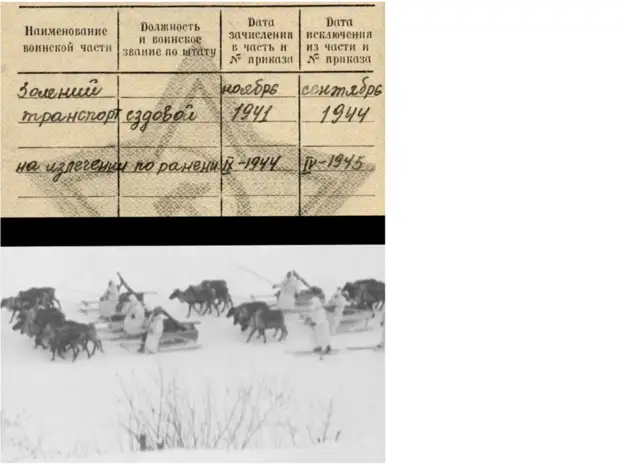 Наименование воинской части
Должность и воинское звание по штату
Дата зачисления в часть и № приказа
Дата исключения из части и № приказа
Золений ноябрь сентябрь
транспорт ездовой 1941 1944
на излечении по ранени IX-1944 IV-1945